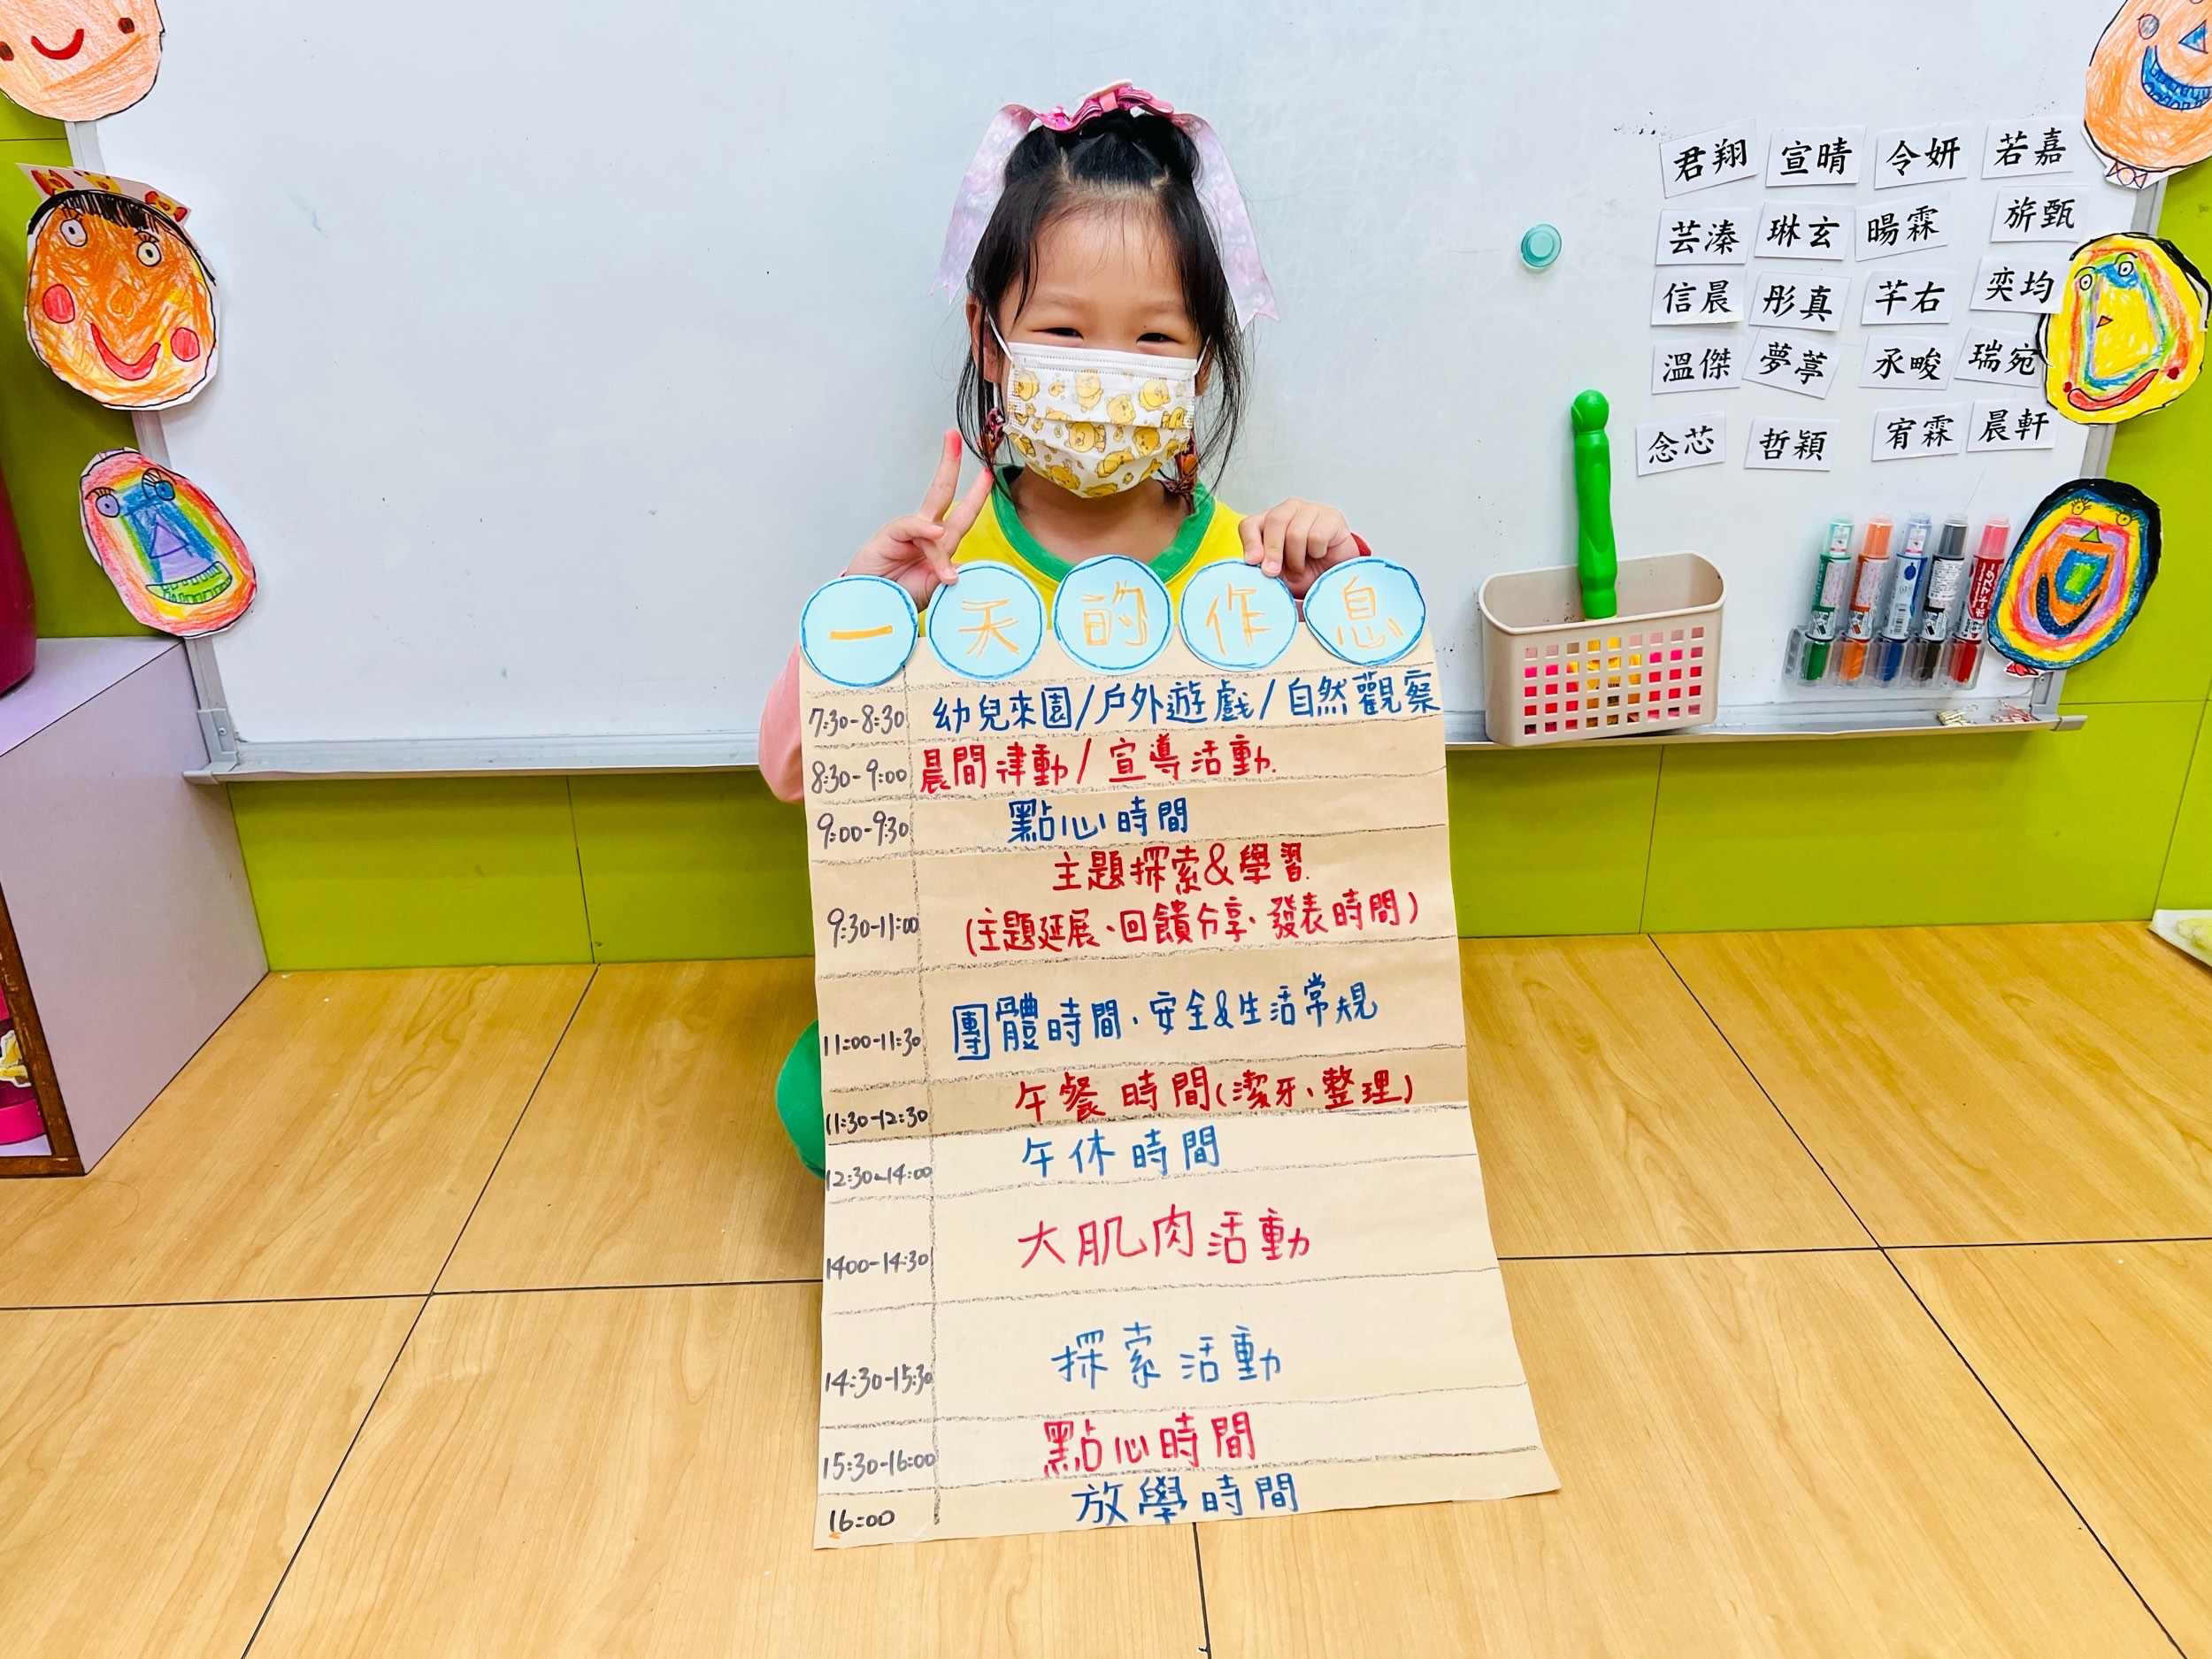 一天的作息
7:30-8:30 幼兒來園/戶外遊戲/自然觀察
8:30-9:00 晨間律動/宣導活動
9:00-9:30 點心時間
主題探索&學習
9:30-11:00 (主題延展、回饋分享、發表時間)
11:00-11:30 團體時間、安全&生活常規
11:30-12:30 午餐時間(潔牙、整理)
12:30-14:00 午休時間
1400-14:30 大肌肉活動
14:30-15:30 探索活動
15:30-16:00 點心時間
16:00 放學時間
君翔 宣晴 令妍 若嘉
芸溱 琳玄 暘霖 旂甄
信晨 彤真 芊右 奕均
溫傑 夢葶 承畯 瑞宛
念芯 哲穎 宥霖 晨軒
ボードマスター